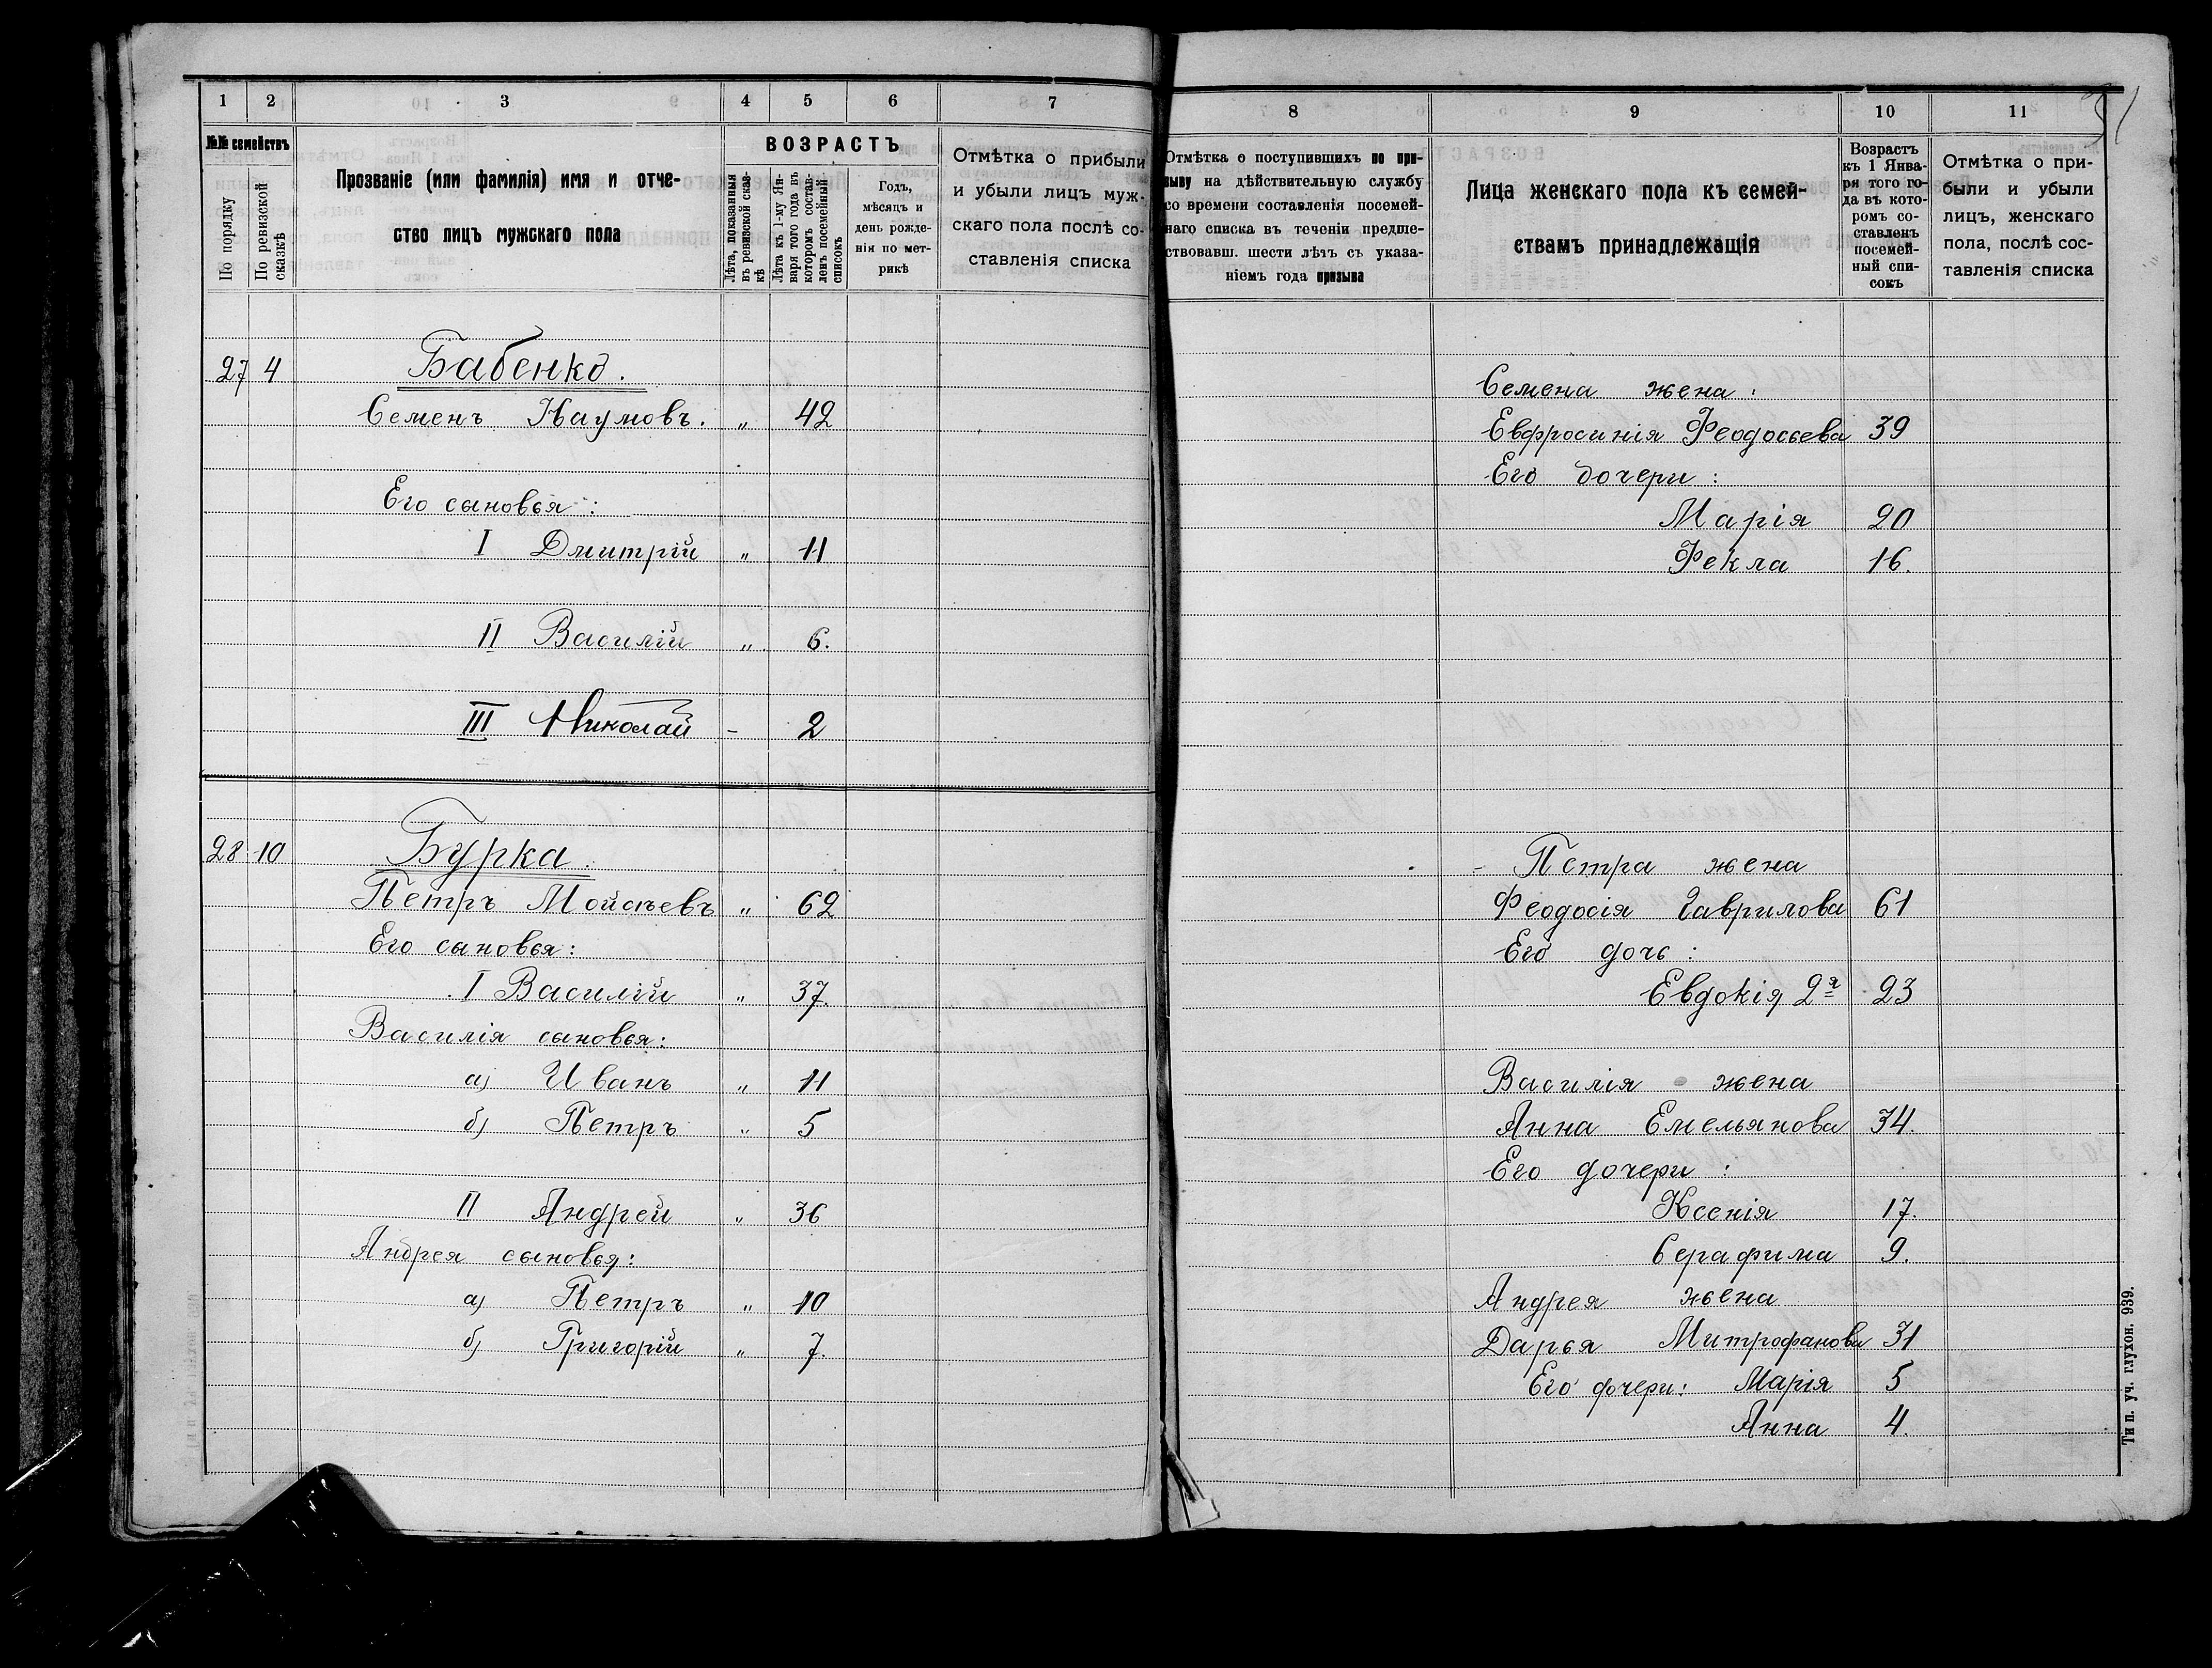 1 2 3 4 5 6 7
№№ семействъ
По порядку
По ревизской сказкѣ
Прозваніе (или фамилія) имя и отче-
ство лицъ мужскаго пола
ВОЗРАСТЪ
Лѣта, показанныя
въ ревизской сказ-
кѣ
Лѣта къ 1-му Ян-
варя того года въ
которомъ состав-
ленъ посемейный
списокъ
Годъ,
мѣсяцъ и
день рожде-
нія по мет-
рикѣ
Отмѣтка о прибыли
и убыли лицъ муж-
скаго пола послѣ со-
ставленія списка
27 4 Бабенко.
Семенъ Наумовъ. „ 42
Его сыновья:
I Дмитрій „ 11
II Василій „ 6.
III Николай - 2
28 10 Бурка.
Петръ Мойсѣевъ „ 62
Его сыновья:
I Василій „ 37.
Василія сыновья:
а) Иванъ „ 11
б) Петръ „ 5
II Андрей „ 36
Андрея сыновья:
а) Петръ „ 10
б) Григорій „ 7.
8 9 10 11
Отмѣтка о поступившихъ по при-
зыву на дѣйствительную службу
со времени составленія посемей-
наго списка въ теченіи предше-
ствовавш. шести лѣтъ съ указа-
ніемъ года призыва
Лица женскаго пола къ семей-
ствамъ принадлежащія
Возрастъ
къ 1 Янва-
ря того го-
да въ кото-
ромъ со-
ставленъ
посемей-
ный спи-
сокъ
Отмѣтка о при-
были и убыли
лицъ, женскаго
пола, послѣ сос-
тавленія списка
Семена жена:
Евфросинія Феодосьева 39
Его дочери:
Марія 20
Фекла 16.
- Петра жена
Феодосія Гаврилова 61
Его дочь:
Евдокія 2я 23
Василія жена
Анна Емельянова 34.
Его дочери:
Ксенія 17.
Серафима 9.
Андрея жена
Дарья Митрофанова 31
Его дочери: Марія 5
Анна 4.
Тип. уч. глухон. 939.